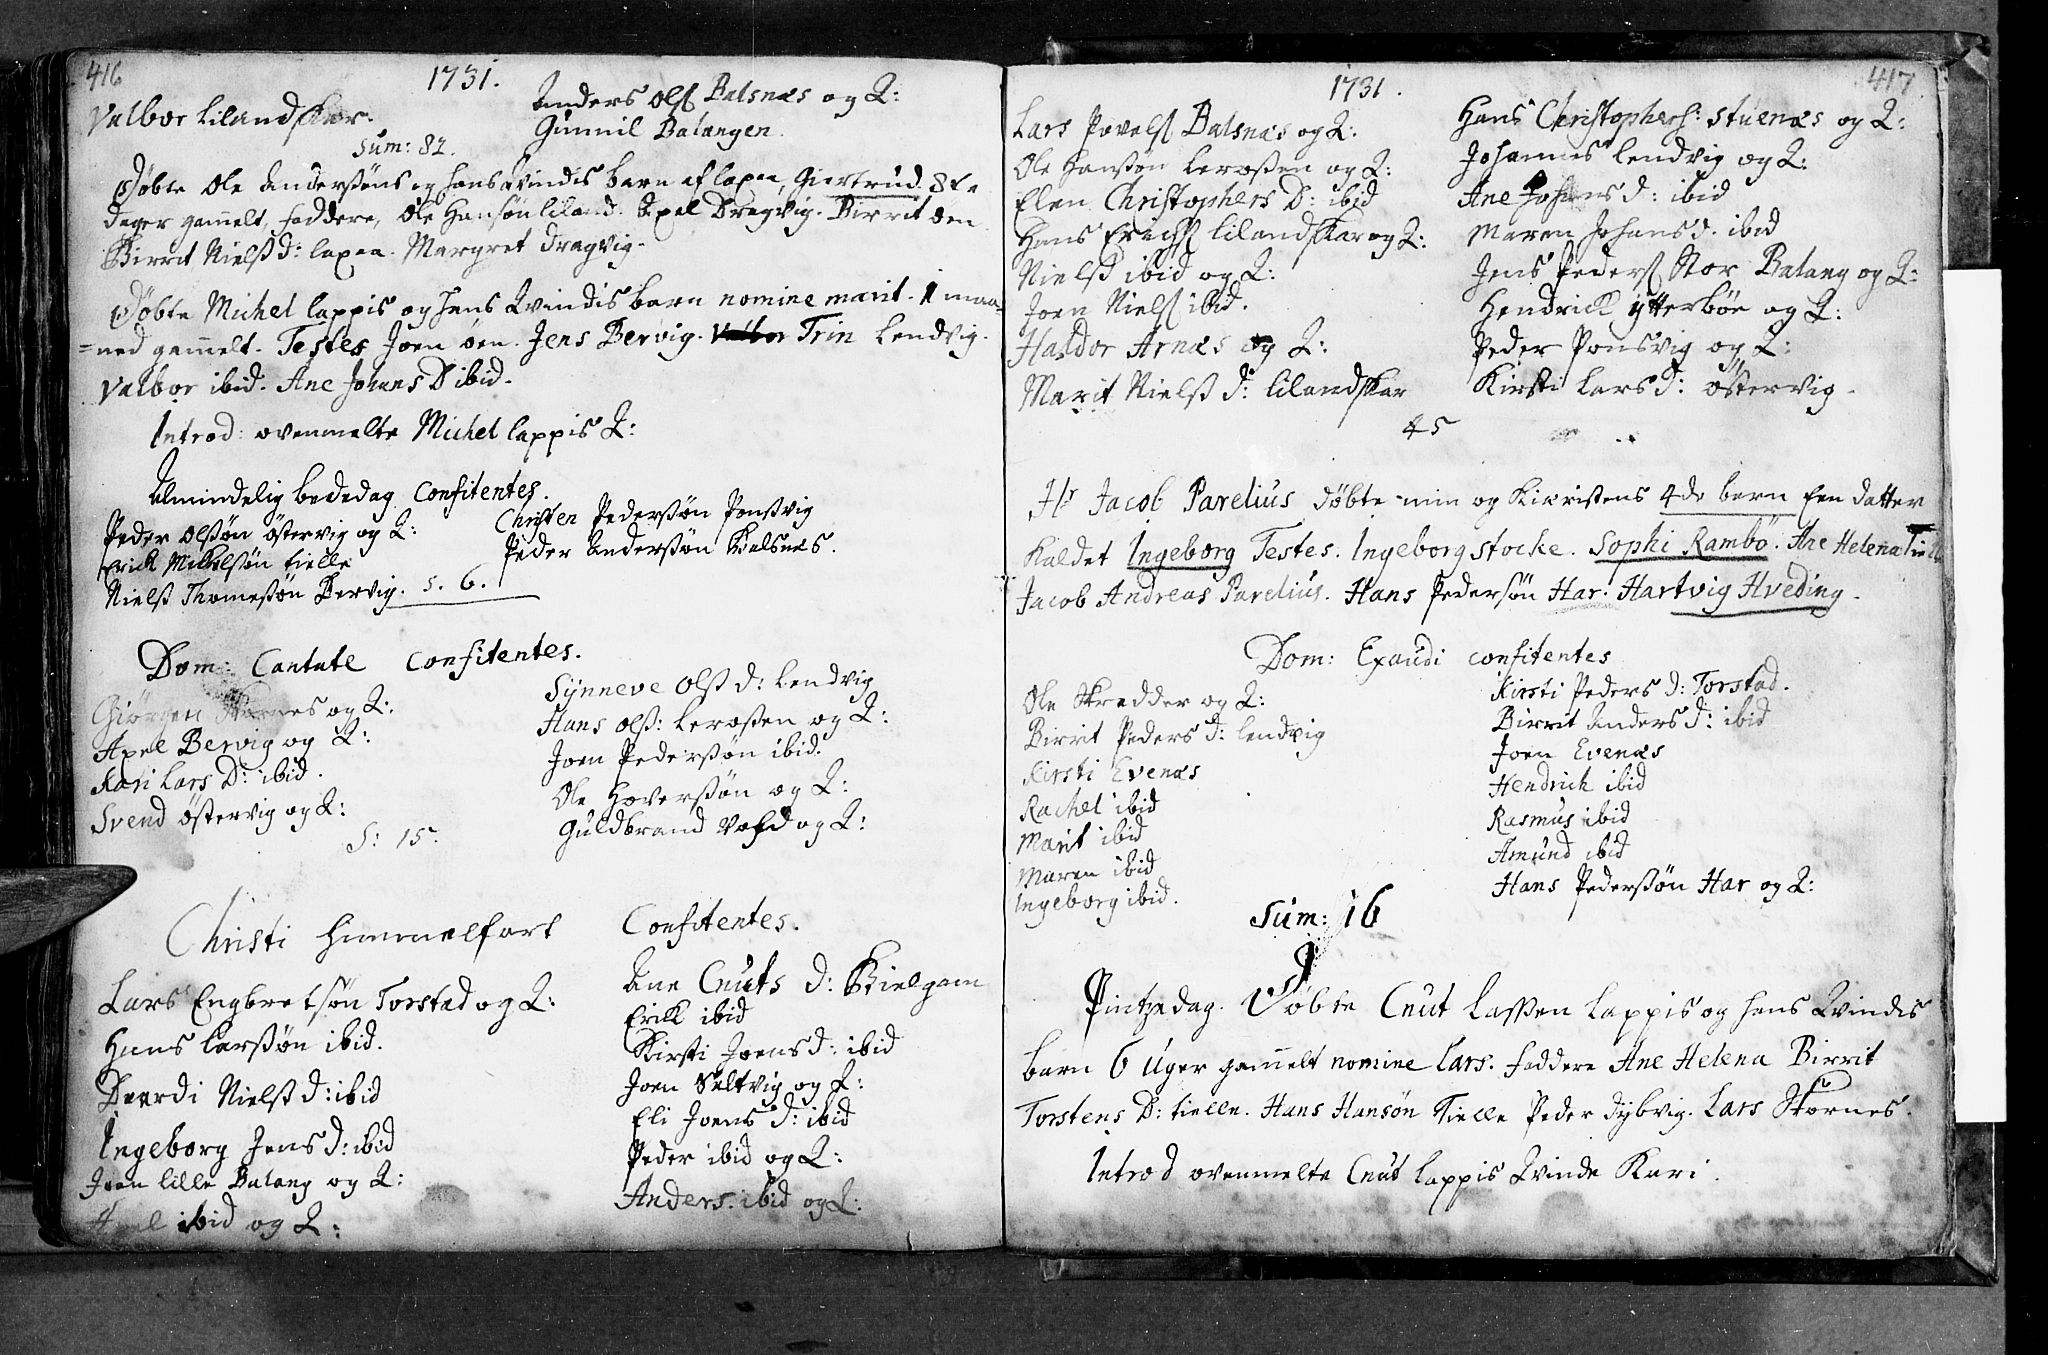 416
1731.
Valbor Lilandskar.
Sum: 82.
Anders Ols Balsnæs og Q:
Gunnil Balangen.
Døbte Ole Anderssøns og hans Qvindis barn af Laxaa, Giertrud 8te
dager gamelt, faddere, Ole Hansøn Liland. Axel Dragvig. Birrit øen
Birrit Nielsd: laxaa. Margret dragvig.
Døbte Michel Lappis og hans Qvindis barn nomine marit. 1 maa-
=ned gamelt. Testes Joen öen. Jens Bervig. Trin Lendvig.
Valbor ibid. Ane Johans D ibid.
Introd: ovenmelte Michel Lappis Q:
Almindelig bededag. Confitentes.
Peder Olssøn östervig og Q:
Erick Michelsøn tielle
Niels Thomessøn Bervig. S. 6.
Christen Pederssøn Ponsvig
Peder Anderssøn Balsnæs.
Dom: Cantate Confitentes.
Giørgen Skornes og Q:
Axel Bervig og Q:
Kari Lars D: ibid.
Svend östervig og Q:
S: 15.
Synneve Ols d: Lendvig
Hans Ols: Lerossen og Q:
Joen Pederssøn ibid.
Ole Hoverssøn og Q:
Guldbrand Vold og Q:
Christi Himmelfart Confitentes.
Lars Engbretsøn Torstad og Q:
Hans Larssøn ibid.
Beerdi Niels d: ibid
Ingeborg Jens d: ibid
Joen lille Balang og Q:
Axel ibid og Q:
Ane Cnuts d: Skielgam
Erick ibid
Kirsti Joens d: ibid
Joen Saltvig og Q:
Eli Joens d: ibid
Peder ibid og Q:
Anders ibid og Q:
417
1731.
Lars Povels Balsnæs og Q:
Ole Hanssøn Lerossen og Q:
Elen Christophers D: ibid
Hans Erichs Lilandskar og Q:
Niels ibid og Q:
Joen Niels ibid.
Haldor Arnæs og Q:
Marit Niels d: Lilandskar
Hans Christophers: Stuenæs og Q:
Johannes Lendvig og Q:
Ane Johans d: ibid
Maren Johans d. ibid
Jens Peders Stor Balang og Q:
Hendrick ytterböe og Q:
Peder Ponsvig og Q:
Kirsti Lars d: östervig.
45
Hr Jacob Parelius döbte min og Kieristens 4de barn Een datter
Kaldet Ingeborg Testes. Ingeborg Stocke. Sophi Rambö. Ane Helena Tielle
Jacob Andreas Parelius. Hans Pedersøn Har. Hartvig Hveding.
Dom: Exaudi confitentes
Ole Skredder og Q:
Birrit Peders d: Lendvig
Kirsti Evenæs
Rachel ibid
Marit ibid
Maren ibid
Ingeborg ibid.
Kirsti Peders d: Torstad.
Birrit Anders d: ibid
Joen Evenæs
Hendrich ibid
Rasmus ibid
Amund ibid
Hans Pederssøn Har og Q:
Sum: 16
Pintzedag. Døbte Cnut Lassen Lappis og hans Qvindis
barn 6 Uger gamelt nomine Lars. Faddere Ane Helena Birrit
Torstens D: tielle. Hans Hansøn Tielle Peder dybvig. Lars Skornes.
Introd ovenmelte Cnut Lappis Qvinde Kari.